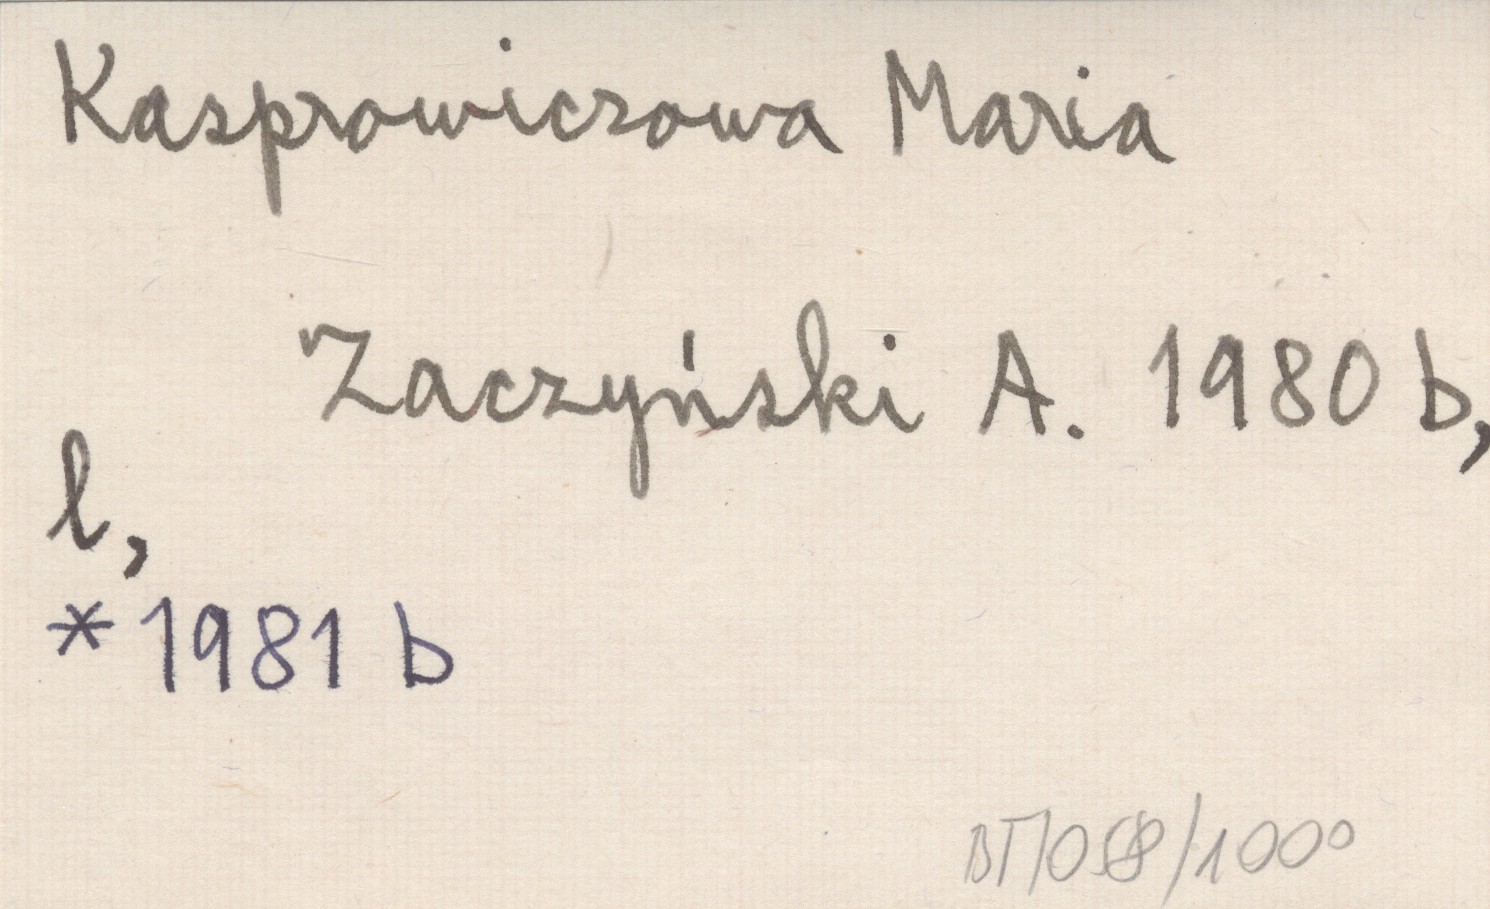 Kasprowiczowa Maria
Zaczyński A. 1980 b,
l,
* 1981 b
BT/058/1000